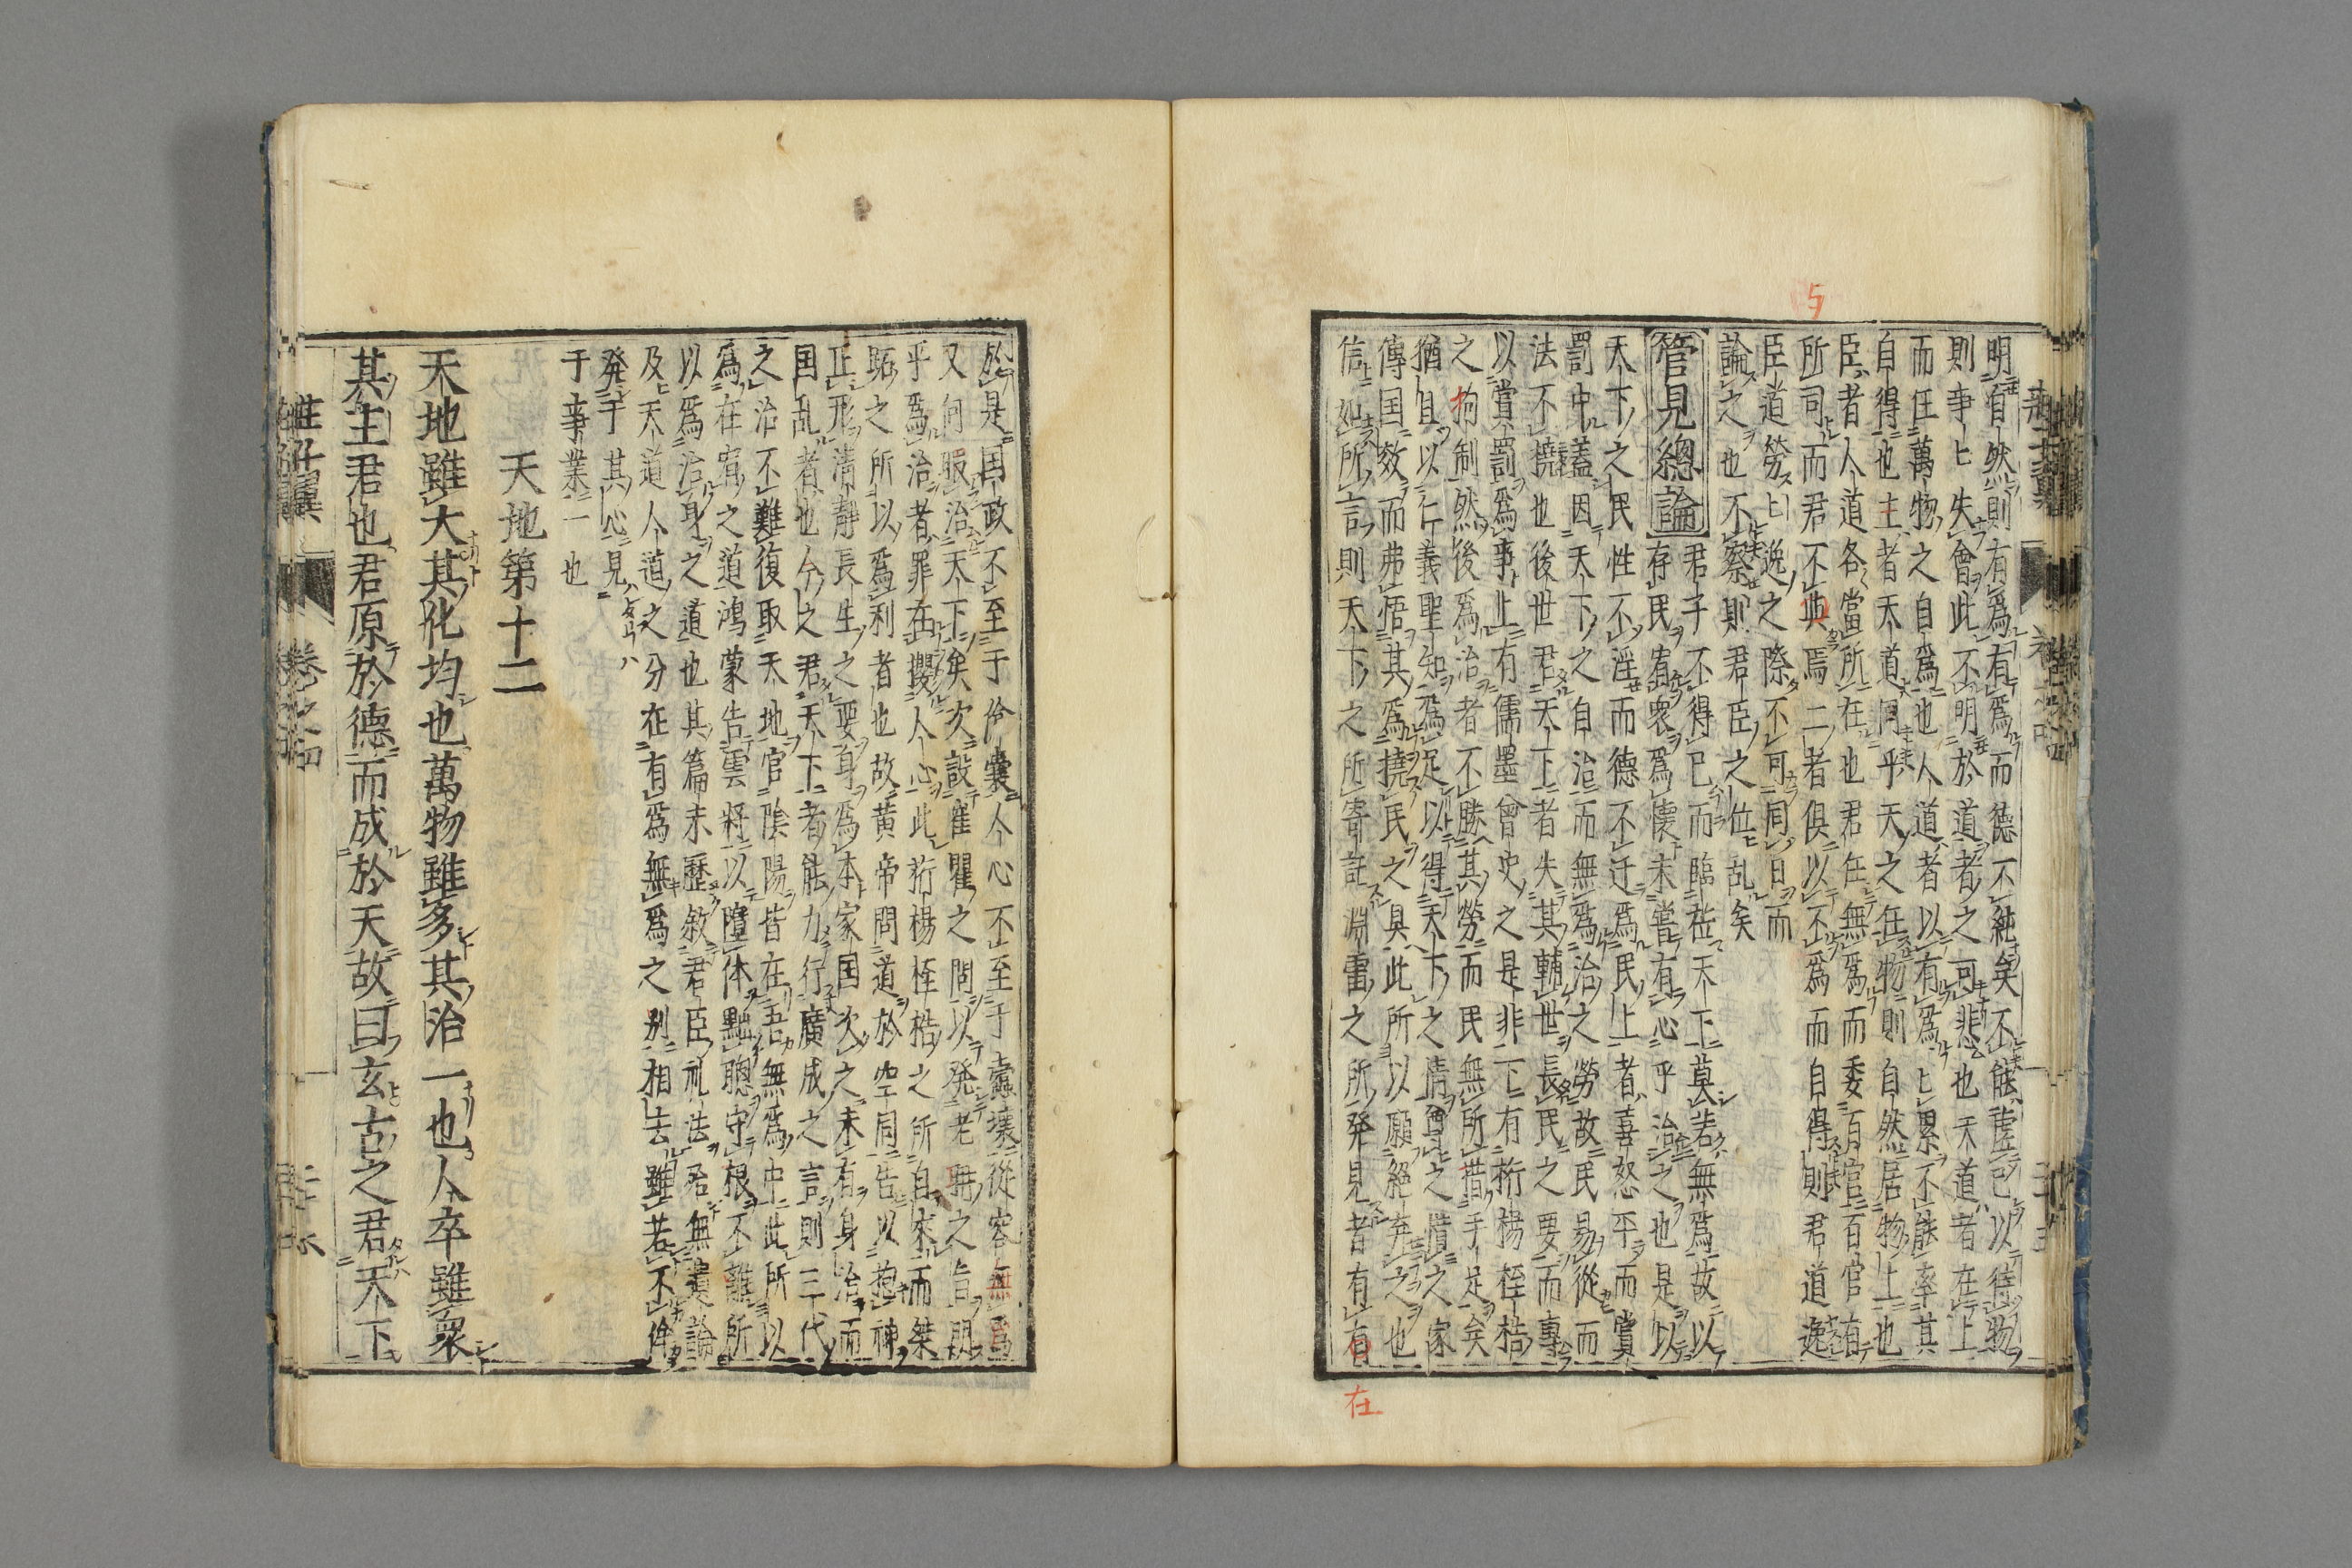 明有然則有爲有爲而德不純矣不能虚已以待物
則事匕失會此不明於道者之可悲也天道者在上
而任萬物之自爲也人道者以有爲匕累不能率其
自得也主者天道同乎天之任物則自然居物上也
臣者人道各當所在也君任無爲而委百官百官有
所司而君不與焉二者俱以不爲而自得則君道逸
臣道勞匕逸之際不可同日而
論之也不察則君臣之位乱矣
管見總論君子不得已而臨莅天下莫若無爲故以
存民宥衆爲懐未嘗有心乎治之也是以
天下之民性不淫而德不迁爲民上者喜怒平而賞
罰中蓋因天下之自治而無爲治之勞故民易從而
法不撓也後世君天下者失其輔世長民之要而專
以賞罰爲事上有儒墨曾史之是非下有桁楊桎梏
之拘制然後爲治者不勝其勞而民無所措手足矣
猶且以仁義聖知爲足以得天下之情之憒之家
傳国效而弗悟其爲撓民之具此所以願絕弃之也
信如所言則天下之所寄託淵雷之所発見者有有
在
於是国政不至于伧囊人心不至于蠧壤從容無爲
又何暇治天下矣次設崔瞿之問以発老耼之旨明
乎爲治者罪在攖人心此桁楊桎梏之所自來而桀
跖之所以爲利者也故黄帝問道於空同告以抱神
正形清靜長生之要身爲本家国次之未有身治而
国乱者也今之君天下者能力行廣成之言則三代
之治不難復取天地官陰陽皆在吾無爲中此所以
爲在宥之道鴻蒙告雲將以墮体黜聰守根不離所
以爲治身之道也其篇末歷敘君臣礼法殆無遺論
及天道人道之分在有爲無爲之別相去雖若不侔
発于其心見
于事業一也
天地第十二
天地雖大其化均也萬物雖多其治一也人卒雖衆
其主君也君原於德而成於天故曰玄古之君天下
卷之四